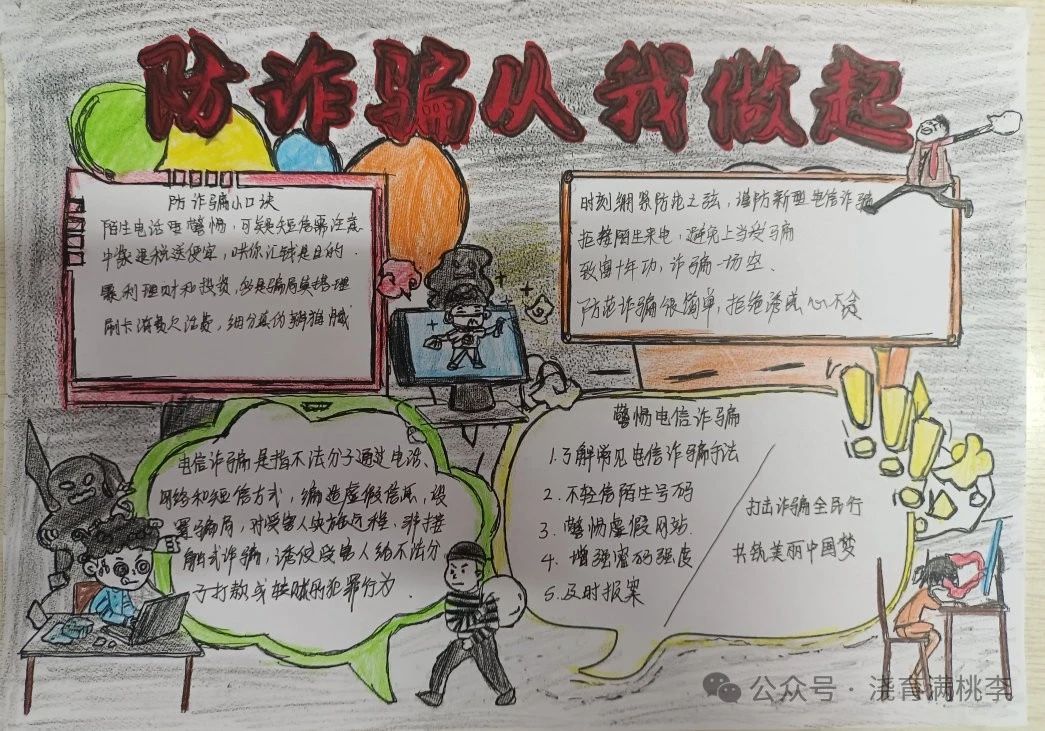 防诈骗从我做起
防诈骗小口诀
陌生电话要警惕，可疑短信需注意
中奖退税送便宜，哄你汇钱是目的．
暴利理财和投资，必是骗局莫搭理
刷卡消费欠话费，细分真伪辨猫腻
时刻绷紧防范之弦，谨防新型电信诈骗
拒接陌生来电，避免上当受骗
致富十年功，诈骗一场空．
防范诈骗很简单，拒绝诱惑心不贪
电信诈骗是指不法分子通过电话、
网络和短信方式，编造虚假信息，设
置骗局，对受害人实施远程、非接
触式诈骗，诱使受害人给不法分
子打款或转账的犯罪行为．
警惕电信诈骗
1.了解常见电信诈骗手法
2.不轻信陌生号码
3.警惕虚假网站.
4.增强密码强度
5.及时报案
打击诈骗全民行
共筑美丽中国梦
公众号·浇育满桃李